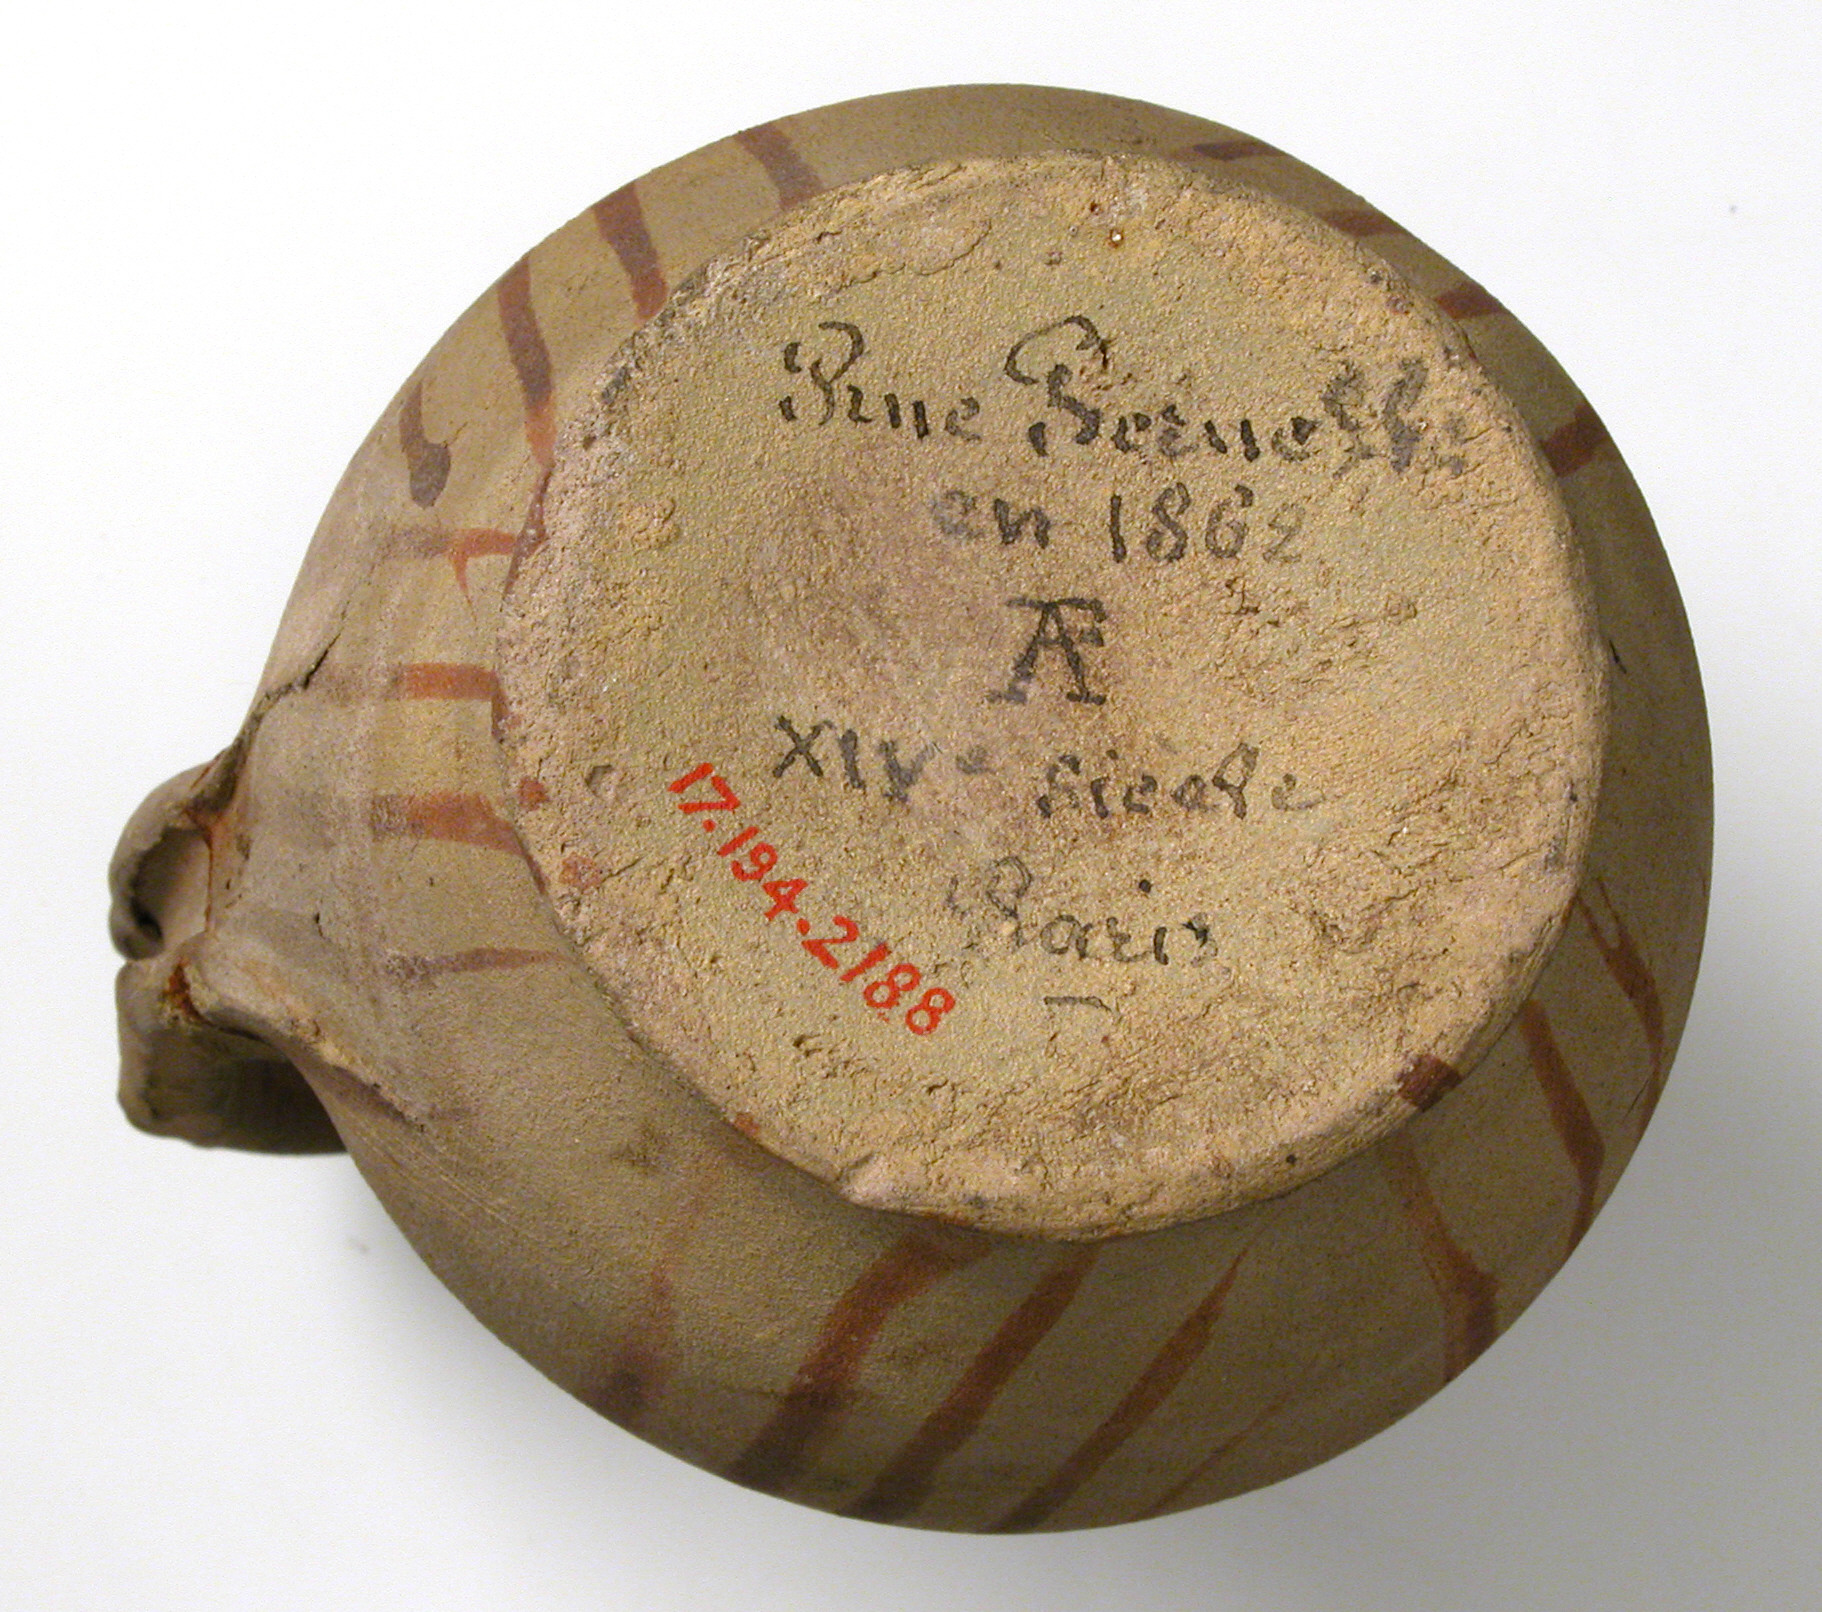 Rue Pernelle
en 1862
AF
XIVe siecle
Paris
17.194.2188